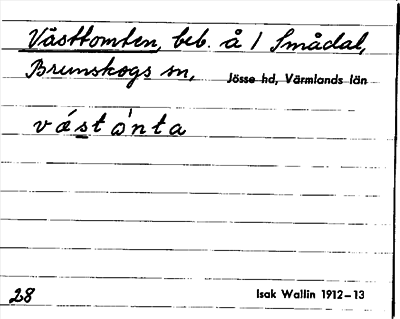 Västtomten, beb. å 1 Smådal,
Brunskogs sn, Jösse hd, Värmlands län
vǽstὼnta
28 Isak Wallin 1912–13